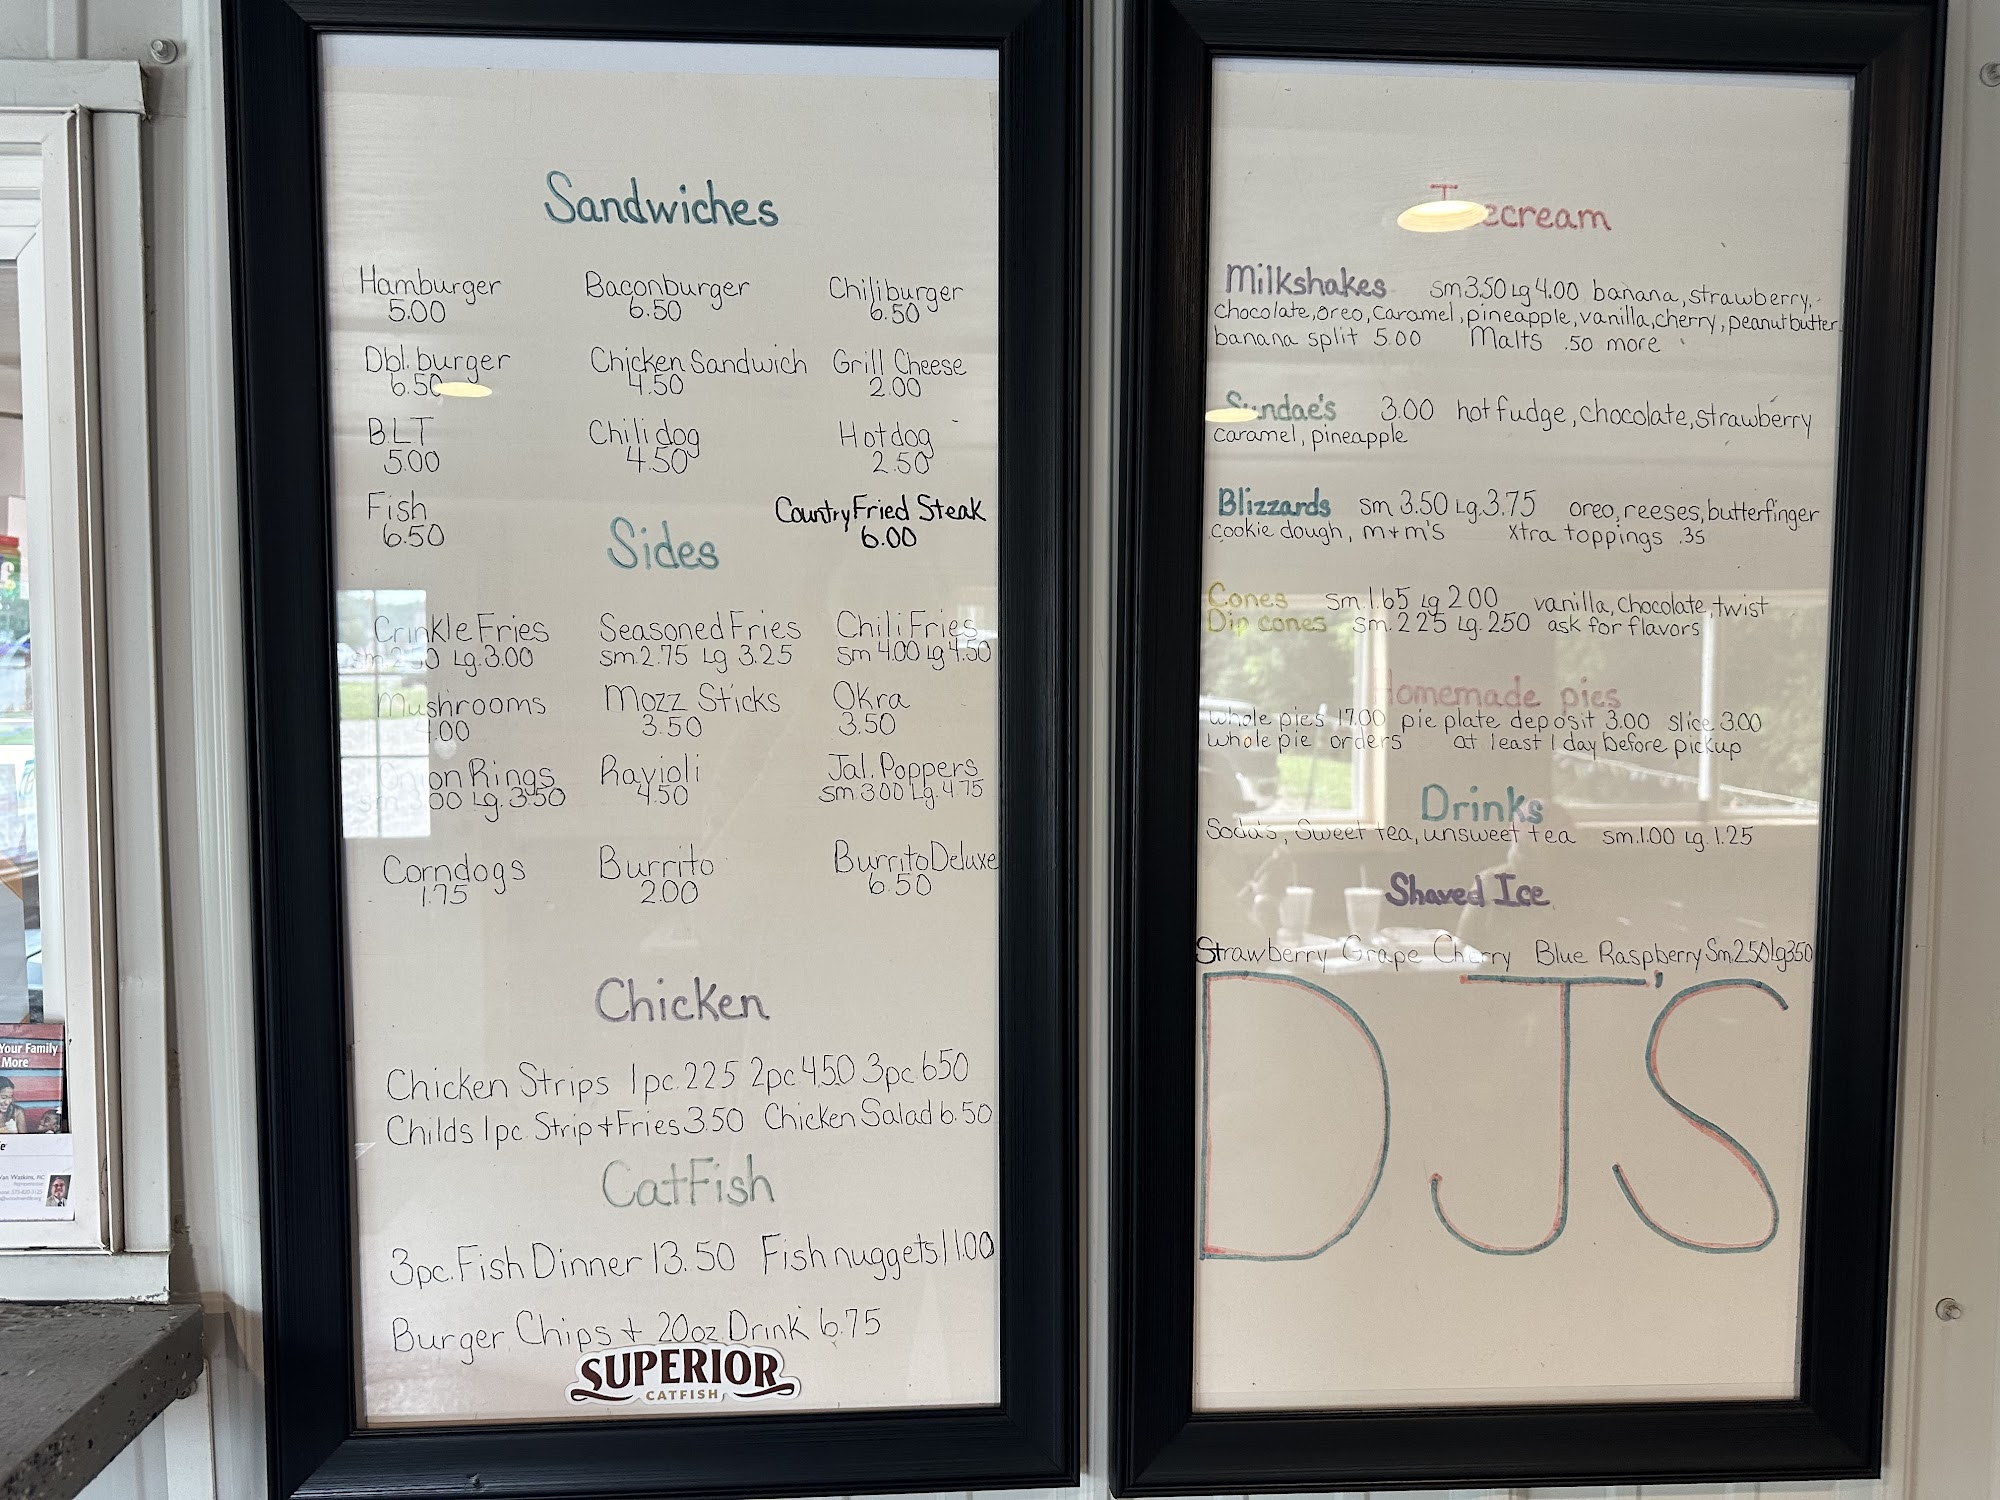 Sandwiches
Hamburger Baconburger Chiliburger
5.00 6.50 6.50
Dbl. burger Chicken Sandwich Grill Cheese
6.50 4.50 2.00
BLT Chili dog Hotdog
5.00 4.50 2.50
Fish Country Fried Steak
6.50 6.00
Sides
Crinkle Fries Seasoned Fries Chili Fries
Lg. 3.00 sm. 2.75 Lg 3.25 sm 4.00 Lg 4.50
Mushrooms Mozz Sticks Okra
3.50 3.50
Onion Rings Ravioli Jal. Poppers
sm. 3.00 Lg. 3.50 4.50 sm. 3.00 Lg. 4.75
Corndogs Burrito Burrito Deluxe
1.75 2.00 6.50
Chicken
Chicken Strips 1pc. 225 2pc 4.50 3pc. 650
Childs 1pc. Strip + Fries 3.50 Chicken Salad 6.50
CatFish
3pc. Fish Dinner 13.50 Fish nuggets 11.00
Burger Chips + 20oz. Drink 6.75
SUPERIOR
CATFISH
Icecream
Milkshakes sm 3.50 Lg 4.00 banana, strawberry,
chocolate, oreo, caramel, pineapple, vanilla, cherry, peanutbutter
banana split 5.00 Malts .50 more
Sundae's 3.00 hot fudge, chocolate, strawberry
caramel, pineapple
Blizzards sm 3.50 Lg. 3.75 oreo, reeses, butterfinger
cookie dough, m+m's xtra toppings .35
Cones sm. 1.65 Lg 2.00 vanilla, chocolate, twist
Dip cones sm. 2 25 Lg. 250 ask for flavors
Homemade pies
whole pies 17.00 pie plate deposit 3.00 slice 3.00
whole pie orders at least 1 day before pickup
Drinks
Soda's, Sweet tea, unsweet tea sm. 1.00 Lg. 1.25
Shaved Ice
Strawberry Grape Cherry Blue Raspberry Sm 2.50 Lg 350
DJ'S
Your Family
More